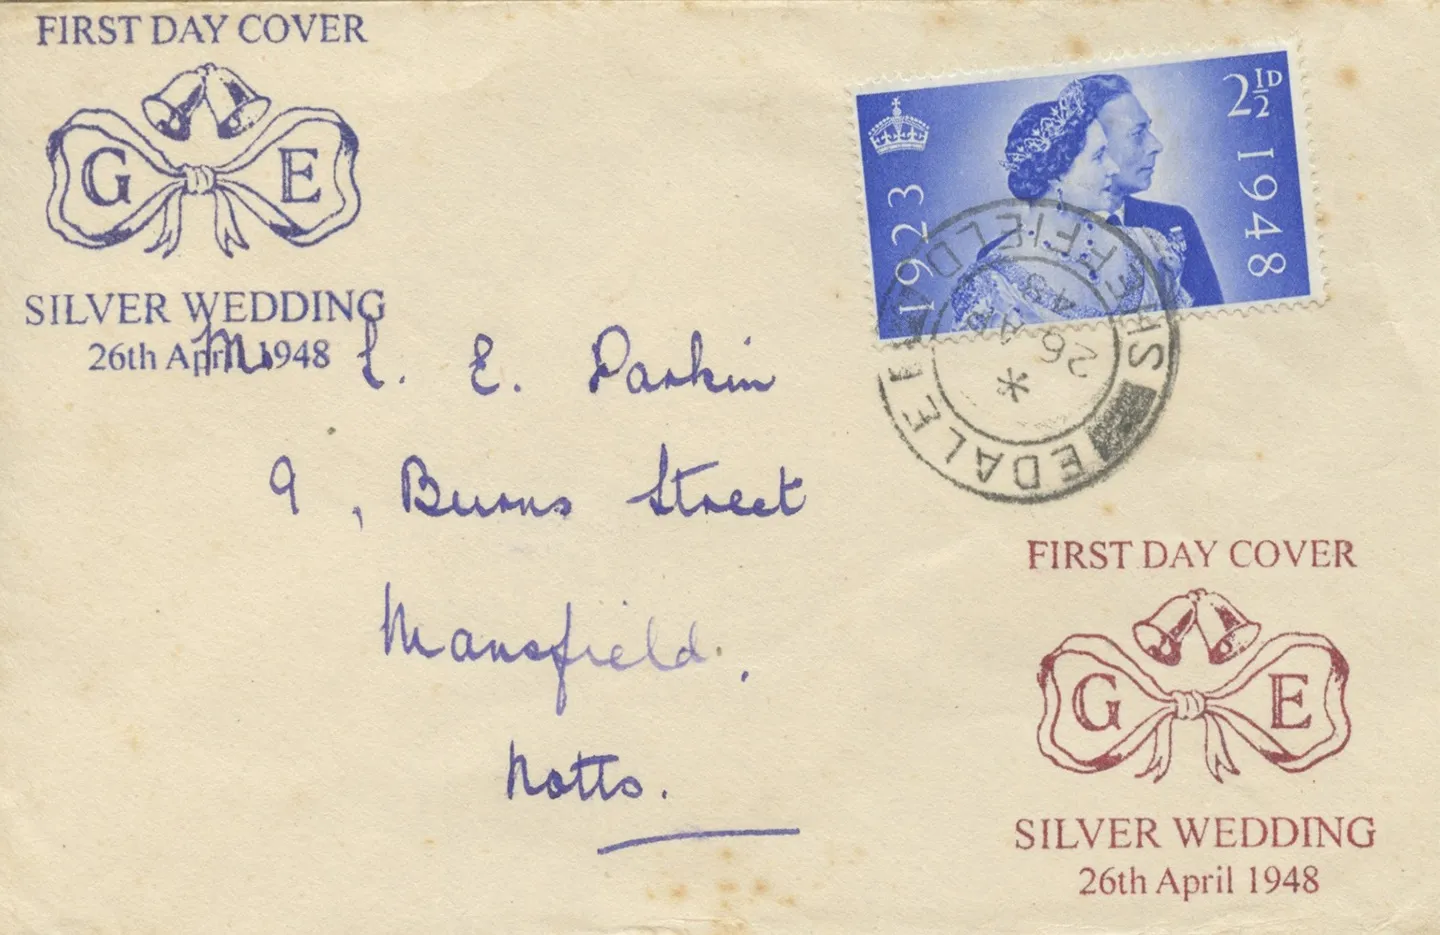 FIRST DAY COVER
G E
SILVER WEDDING
26th April 1948
2½D
1923
1948
EDALE SHEFFIELD
26 AP
48
*
Mr L. E. Parkin
9, Burns Street
Mansfield,
Notts.
FIRST DAY COVER
G E
SILVER WEDDING
26th April 1948